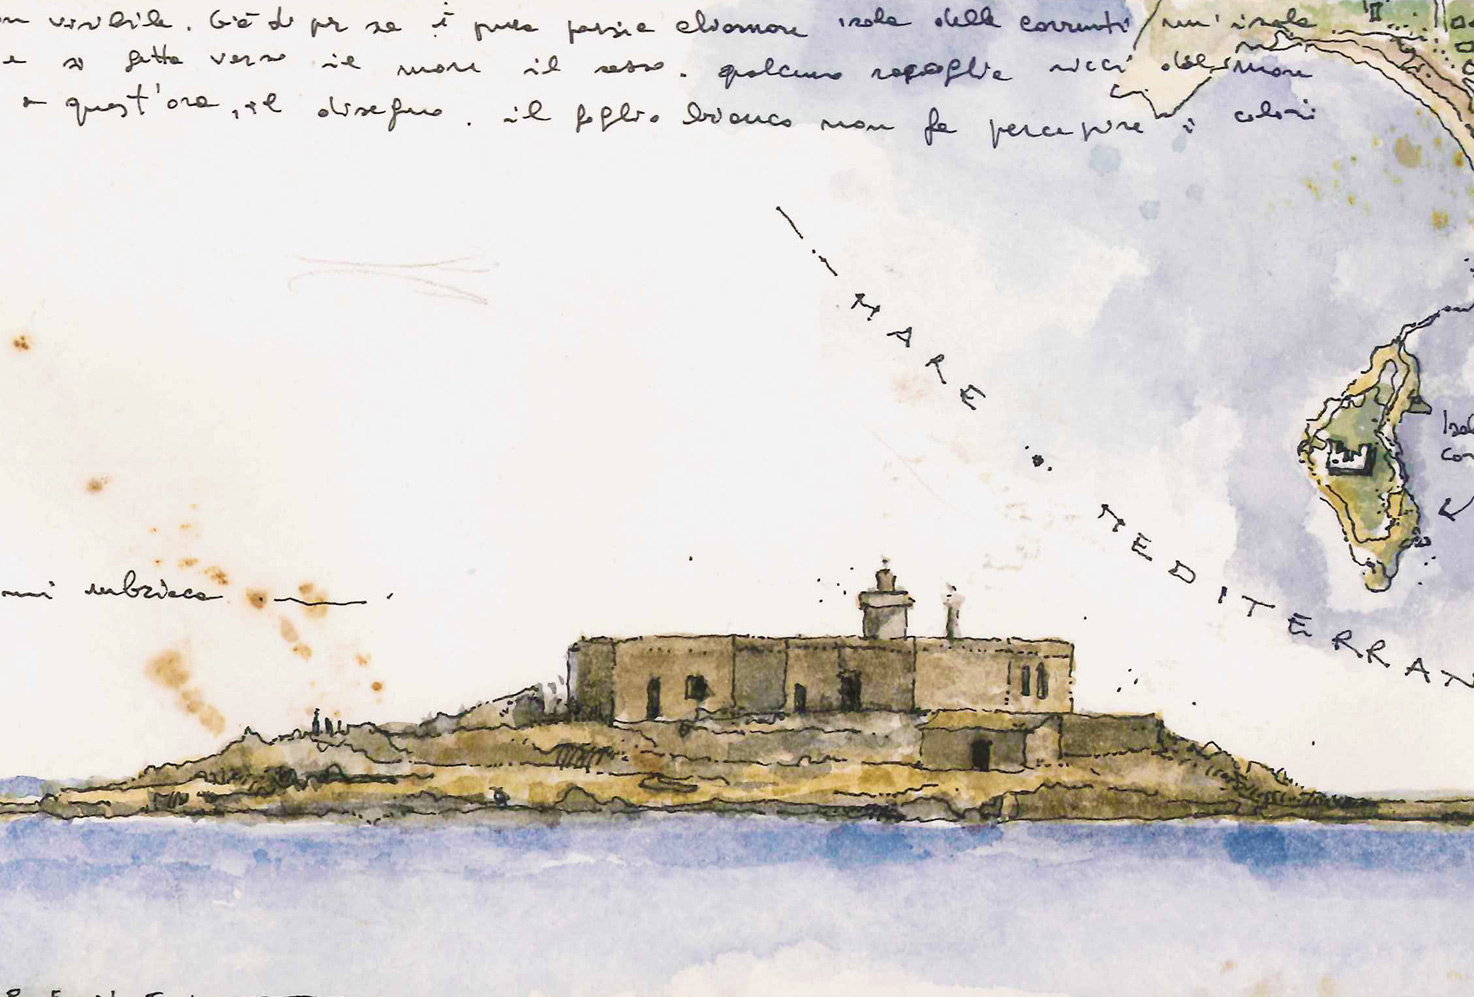 visibile. Già di per se è pura poesia chiamare isola delle correnti un'isola
e si getta verso il mare il sasso. qualcuno raccoglie ricci del mare
a quest'ora, il disegno. il foglio bianco non fa percepire i colori
MARE
MEDITERRAN
Isol
cor
mi ubriaca